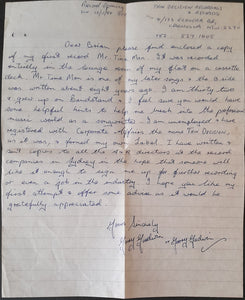 TEN DECISION RECORDINGS
& RECORDS
Dear Brian, please find enclosed a copy
of my first record Mr Time Man. It was recorded
entirely in the lounge room of my flat on a cassette
deck. Mr Time Man is one of my later songs & the B side
was written about eight years ago. I am thirty two
& grew up on Bandstand & I feel sure you would have
some helpful hints to help me break into the profession
music world as a songwriter. I am unemployed & have
registered with Corporate Affairs the name TEN DECISION,
as it was, & formed my own label. I have written &
sent copies to all the A&R directors in the record
companies in Sydney in the hope that someone will
like it enough to sign me up for further recording
or even a job in the industry. I hope you like my
first attempt & offer some advice as it would be
gratefully appreciated.
Yours Sincerely